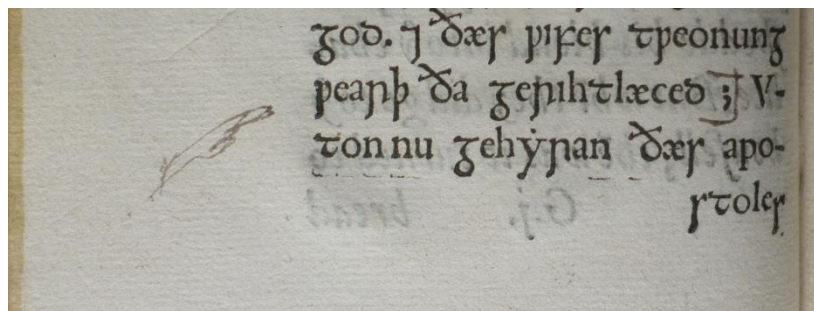 god. ⁊ ðæs ƿifes tƿeonung
ƿearþ ða gerihtlæced ; V-
ton nu gehẏran ðæs apo-
stoles